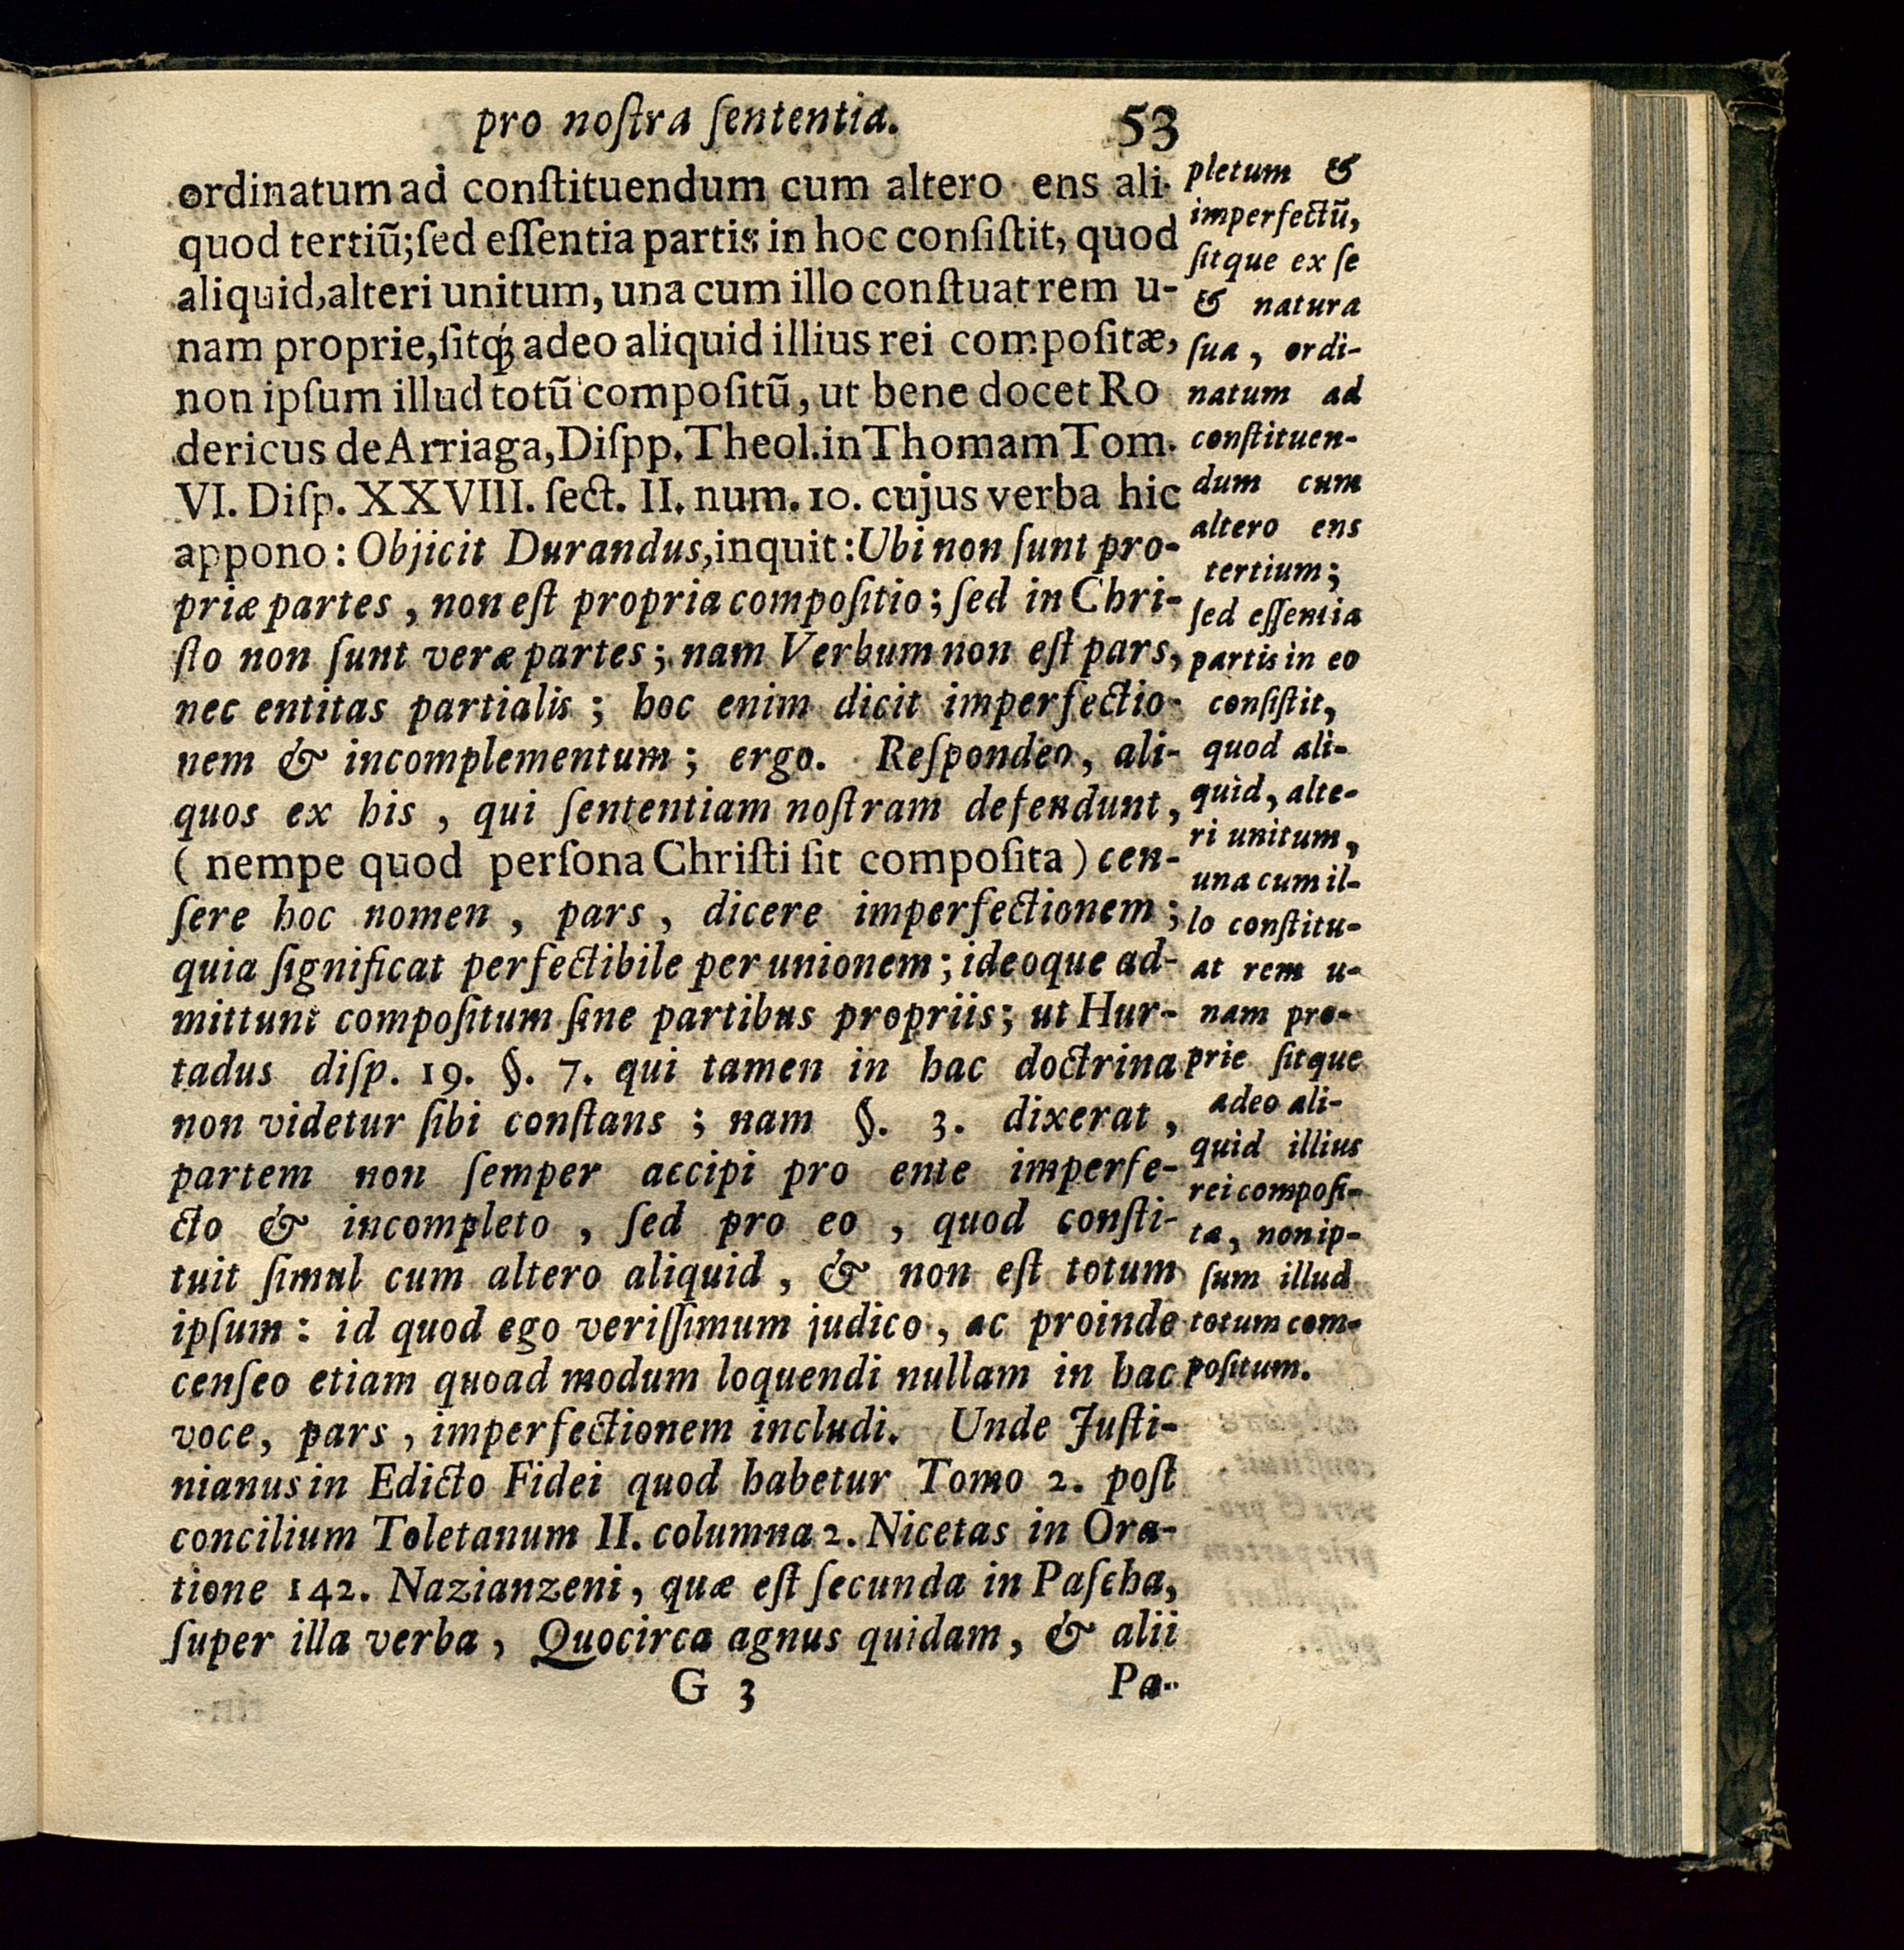 pro noſtra ſententia. 53
ordinatum ad conſtituendum cum altero ens ali-
quod tertiũ; ſed eſſentia partis in hoc conſiſtit, quod
aliquid, alteri unitum, una cum illo conſtuat rem u-
nam proprie, ſitq́ꝫ adeo aliquid illius rei compoſitæ,
non ipſum illud totũ compoſitũ, ut bene docet Ro
dericus de Arriaga, Diſpp. Theol. in Thomam Tom.
VI. Diſp. XXVIII. ſect. II. num. 10. cujus verba hic
appono: Objicit Durandus, inquit: Ubi non ſunt pro-
priæ partes, non eſt propria compoſitio; ſed in Chri-
ſto non ſunt veræ partes; nam Verbum non eſt pars,
nec entitas partialis; hoc enim dicit imperfectio-
nem & incomplementum; ergo. Reſpondeo, ali-
quos ex his, qui ſententiam noſtram defendunt,
(nempe quod perſona Chriſti ſit compoſita) cen-
ſere hoc nomen, pars, dicere imperfectionem;
quia ſignificat perfectibile per unionem; ideoque ad-
mittunt compoſitum ſine partibus propriis; ut Hur-
tadus diſp. 19. §. 7. qui tamen in hac doctrina
non videtur ſibi conſtans; nam §. 3. dixerat,
partem non ſemper accipi pro ente imperfe-
cto & incompleto, ſed pro eo, quod conſti-
tuit ſimul cum altero aliquid, & non eſt totum
ipſum: id quod ego veriſſimum judico, ac proinde
cenſeo etiam quoad modum loquendi nullam in hac
voce, pars, imperfectionem includi. Unde Juſti-
nianus in Edicto Fidei quod habetur Tomo 2. poſt
concilium Toletanum II. columna 2. Nicetas in Ora-
tione 142. Nazianzeni, quæ eſt ſecunda in Paſcha,
ſuper illa verba, Quocirca agnus quidam, & alii
G 3 Pa-
pletum &
imperfectũ,
ſitque ex ſe
& natura
ſua, ordi-
natum ad
conſtituen-
dum cum
altero ens
tertium;
ſed eſſentia
partis in eo
conſiſtit,
quod ali-
quid, alte-
ri unitum,
una cum il-
lo conſtitu-
at rem u-
nam pro-
prie ſitque
adeo ali-
quid illius
rei compoſi-
tæ, non ip-
ſum illud
totum com-
poſitum.